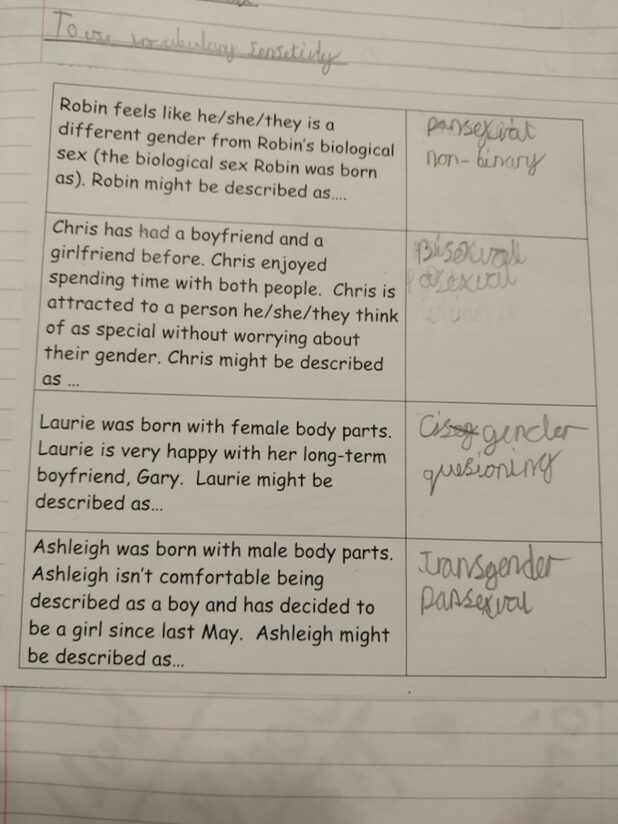 To use vocabulary sensetivly
Robin feels like he/she/they is a
different gender from Robin's biological
sex (the biological sex Robin was born
as). Robin might be described as....
pansexual
non-binary
Chris has had a boyfriend and a
girlfriend before. Chris enjoyed
spending time with both people. Chris is
attracted to a person he/she/they think
of as special without worrying about
their gender. Chris might be described
as ...
Bisexual
asexual
Laurie was born with female body parts.
Laurie is very happy with her long-term
boyfriend, Gary. Laurie might be
described as...
Cisgender
quesioning
Ashleigh was born with male body parts.
Ashleigh isn't comfortable being
described as a boy and has decided to
be a girl since last May. Ashleigh might
be described as...
Transgender
pansexual